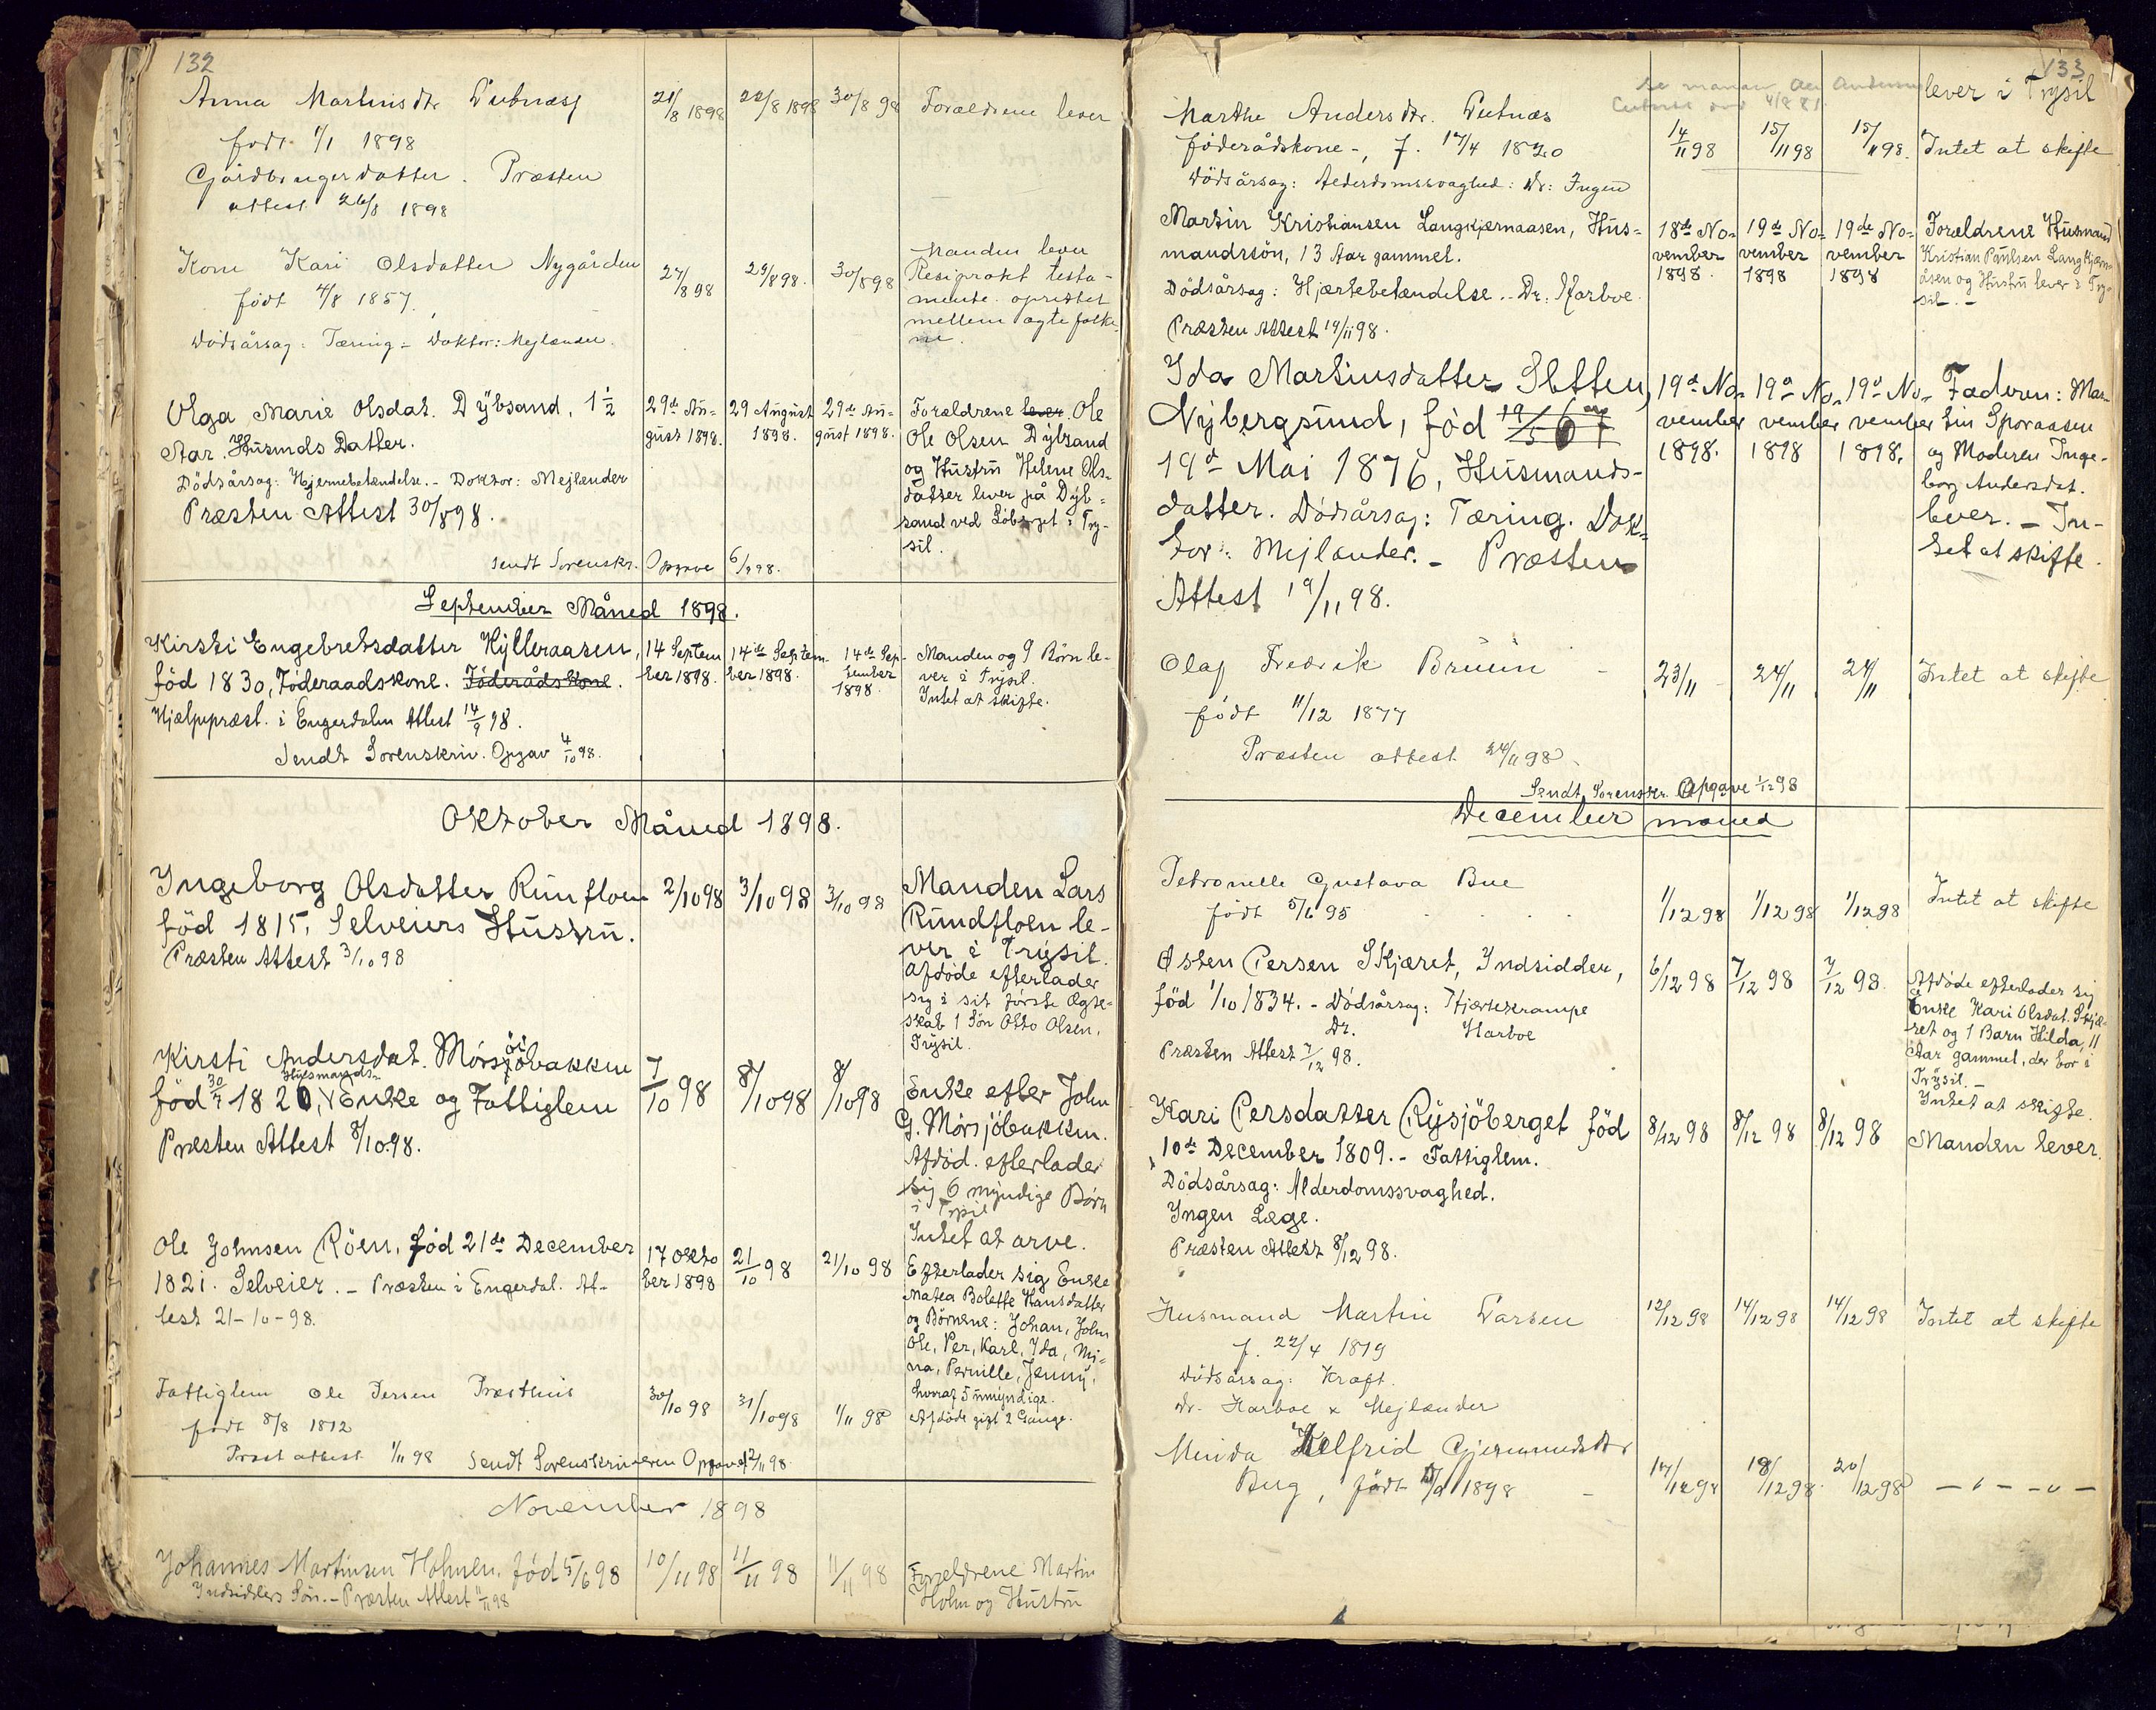 132
Anna Martinsdtr
21/8 1898
22/8 1898
30/8 98
Forældrene lever
født 1/1 1898
Gårdbrugerdatter. Præsten
attest 26/8 1898
Kone Kari Olsdatter Nygården
født 4/8 1857.
Dødsårsag: Tæring - Doktor: Mejlænder.
27/8 98
29/8 98.
30/8 98
Manden lever
Resiprokt testa-
mente oprettet
mellem ægtefolke
ne.
Olga Marie Olsdat. Dÿbsand, 1 1/2
Aar. Husmds Datter.
Dödsårsag: Hjernebetændelse. - Doktor: Mejlænder
Præsten Attest 30/8 98.
29de Au-
gust 1898.
29 August
1898.
29de Au-
gust 1898.
Forældrene lever. Ole
Ole Olsen Dÿbsand
og Hustru Helene Ols-
datter lever på Dÿb-
sand ved i Try-
sil.
Sendt Sorenskr. Opgave 6/9 98.
September Måned 1898.
Kirsti Engebretsdatter Hylleraasen,
föd 1830, Föderaadskone. Föderådskone.
Hjælpepræst. i Engerdalen Attest 14/9 98.
Sendt Sorenskriv. Opgav 4/10 98.
14 Septem
ber 1898.
14de Septem-
ber 1898.
14de Sep-
tember
1898.
Manden og 9 Börn le-
ver i Trysil.
Intet at skifte.
Oktober Måned 1898.
Ingeborg Olsdatter Runfloen
föd 1815, Selveiers Hustru.
Præsten Attest 3/10 98
2/10 98
3/10 98
3/10 98
Manden Lars
Rundfloen le-
ver i Trysil.
Afdöde efterlader
sig i sit første Ægte-
skab 1 Sön Otto Olsen,
Trysil.
Kirsti Andersdat. Mörsjöbakken
föd 30/7 1820, Husmands- Enke og Fattiglem
Præsten Attest 8/10 98.
7/10 98
8/10 98
8/10 98
Enke efter John
G. Mörsjöbakken.
Afdöd. efterlader
sig 6 myndige Börn
i Trysil
Intet at arve.
Ole Johnsen Röen, föd 21de December
1821. Selveier. - Præsten i Engerdal. At-
test 21-10-98.
17 Okto
ber 1898
21/10 98
21/10 98
Efterlader sig Enke
Matea Bolette Hansdatter
og Börnene: Johan, John
Ole, Per, Karl, Ida, Mi-
na, Pernille, Jenny,
hvoraf 5 umyndige.
Afdöde gift 2 Gange.
Fattiglem Ole Persen
født 8/8 1812
Præst attest 1/11 98 Sendt Sorenskriveren Opgave 2/11 98.
30/10 98
31/10 98
1/11 98
November 1898
Johannes Martinsen Holmen, föd 5/6 98
Indsidders Sön. - Præsten Attest 11/11 98
10/11 98
11/11 98
11/11 98
Forældrene Martin
Holm og Hustru
133
lever i Trysil
Marthe Andersdtr.
føderådskone -, f. 17/4 1820
Dødsårsag: Alderdomssvaghed: Dr: Ingen
14/11 98
15/11 98
15/11 98.
Intet at skifte
Martin Kristiansen Langkjernaasen, Hus-
mandssön, 13 Aar gammel.
Dödsårsag: Hjertebetændelse. - Dr: Harboe.
Præsten Attest 19/11 98.
18de No-
vember
1898.
19de No-
vember
1898
19de No-
vember
1898
Forældrene Husmand
Kristian Paulsen Langkjern-
åsen og Hustru lever i Try-
sil. -
Ida Martinsdatter Sætten,
Nÿbergsund, föd
19de Mai 1876, Husmands-
datter. Dödsårsag: Tæring. Dok-
tor: Mejlænder. - Præsten
Attest 19/11 98.
19de No-
vember
1898.
19de No-
vember
1898
19de No-
vember
1898.
Faderen: Mar-
tin Sporaasen
og Moderen Inge-
borg Andersdat.
lever. - In-
tet at skifte.
Olaf Fredrik Bruun
født 11/12 1877
Præsten attest 24/11 98.
23/11
24/11
24/11
Intet at skifte
Sendt Sorenskr. Opgave 1/12 98
December måned
Petronelle Gustava Bue
født 5/6 95
1/12 98
1/12 98
1/12 98
Intet at skifte
Østen Persen Skjæret, Indsidder,
föd 1/10 1834. - Dödsårsag: Hjertekrampe
Dr. Harboe
Præsten Attest 7/12 98.
6/12 98
7/12 98
7/12 98.
Afdöde efterlader sig
Enke Kari Olsdat. Skjæ-
ret og 1 Barn Hilda, 11
Aar gammel, der bor i
Trysil. -
Intet at skifte.
Kari Persdatter Rysjöberget föd
10de December 1809. - Fattiglem.
Dödsårsag: Alderdomssvaghed.
Ingen Læge.
Præsten Attest 8/12 98.
8/12 98
8/12 98
8/12 98
Manden lever.
Husmand Martin Larsen
f. 22/4 1819
Dødsårsag: Kræft.
Dr. Harboe & Mejlænder
12/12 98
14/12 98
14/12 98
Intet at skifte
Minda Gjermundsdtr
Berg, født 1898
17/12 98
18/12 98.
20/12 98